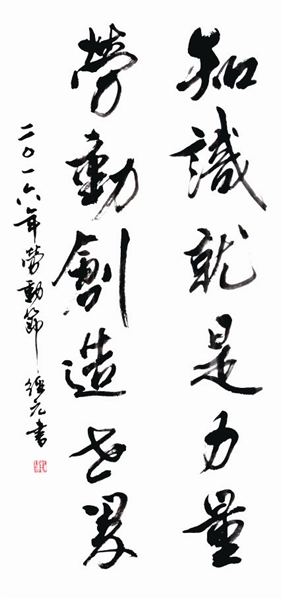 知識就是力量
勞動創造世界
二〇一六年勞動節 經元書